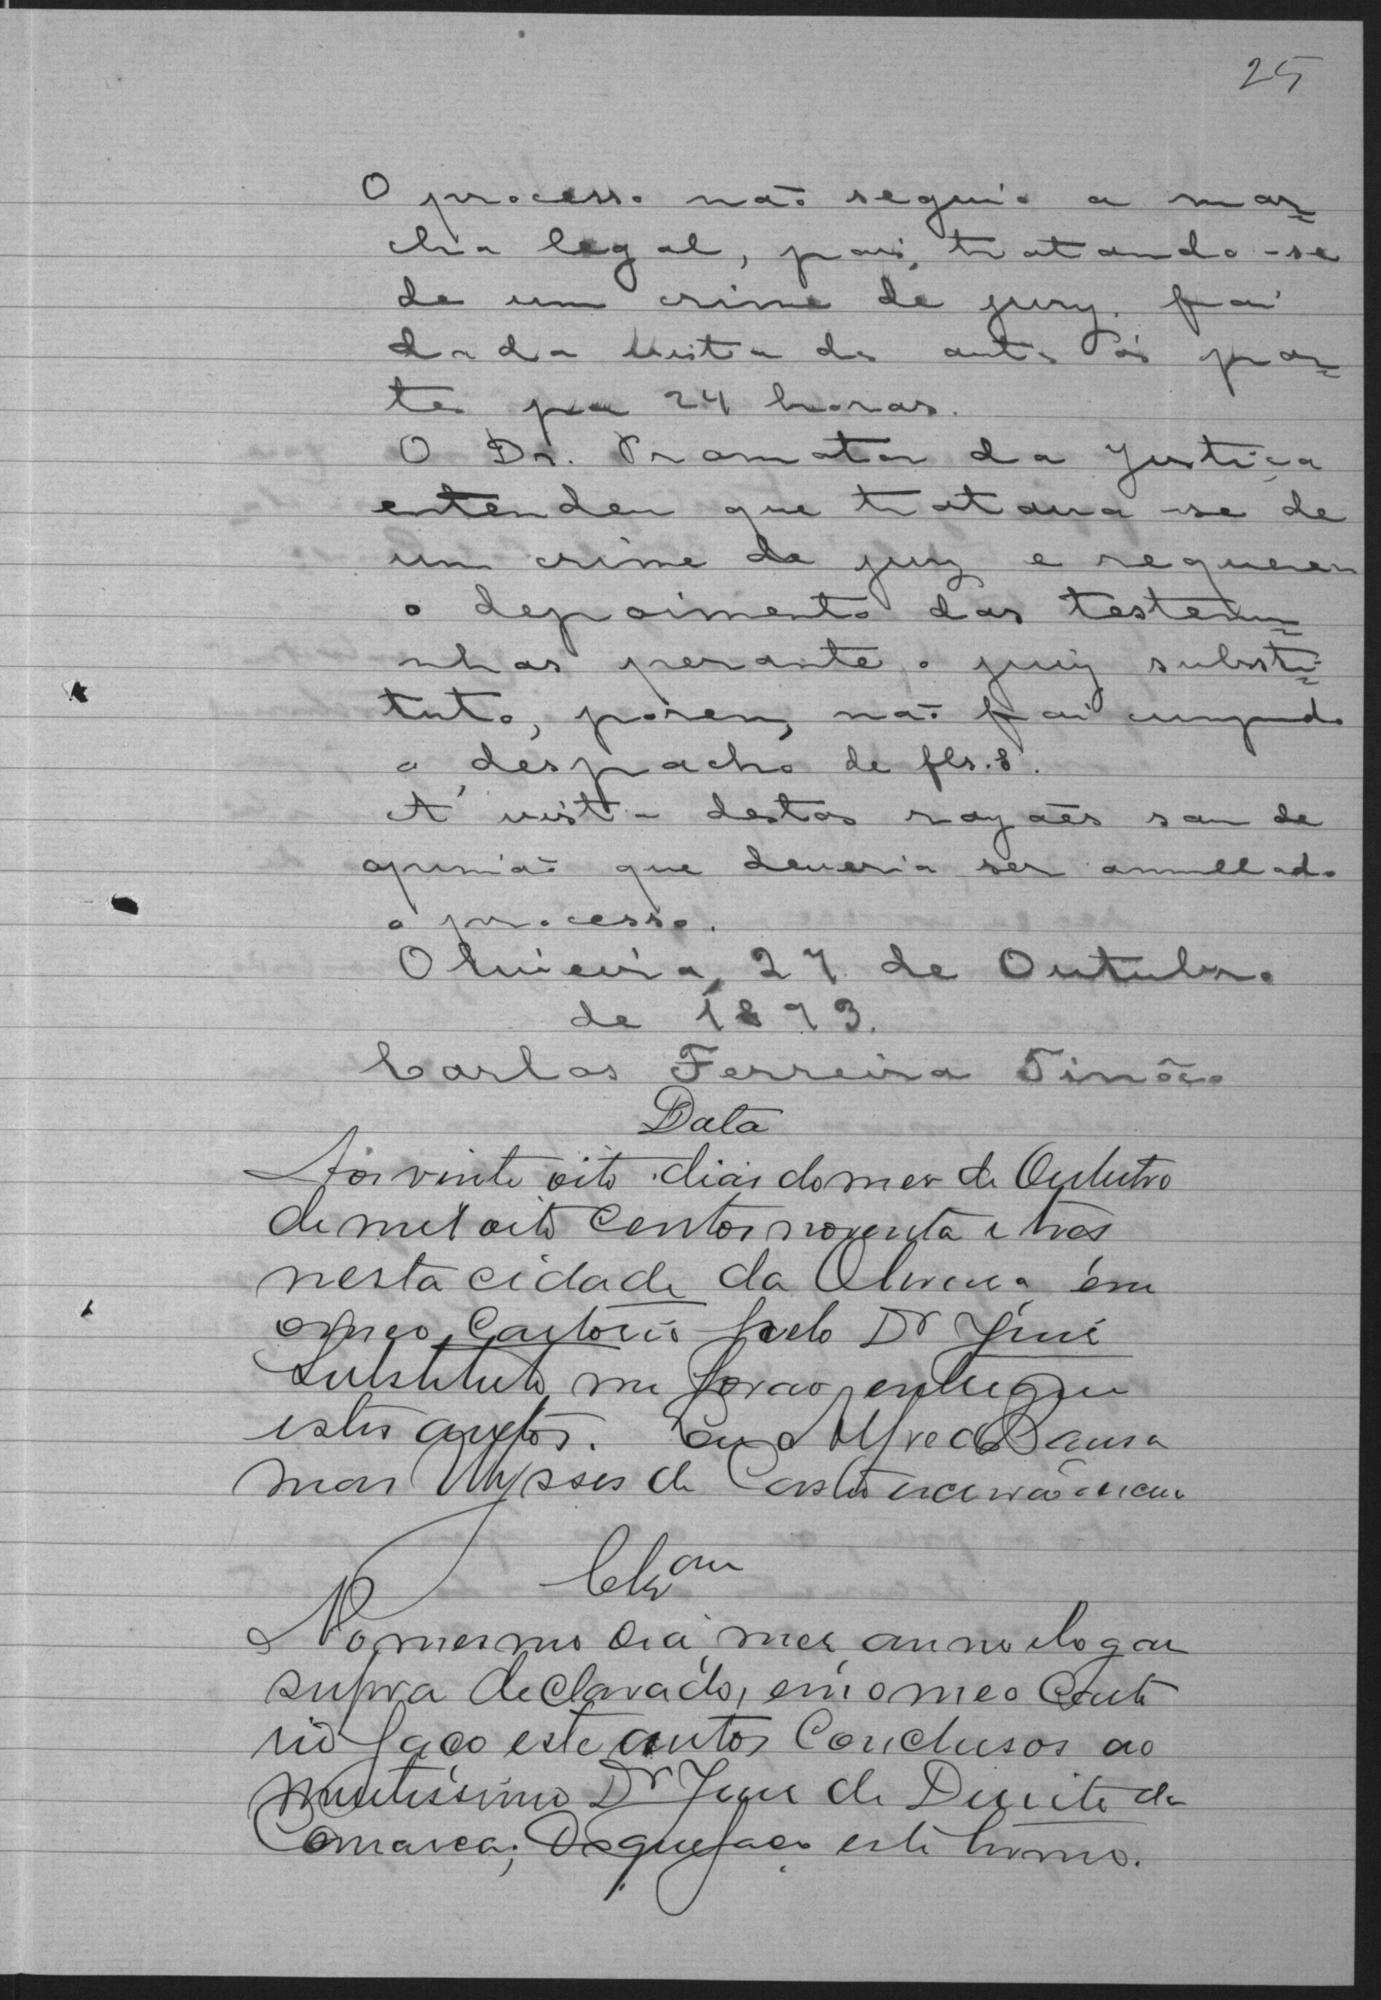 25
O processo não seguio a mar=
cha legal, pois, tratando-se
de um crime de jury, foi
dada vista do autos ás par=
tes por 24 horas.
O Dr. Promotor da Justiça
entendeu que tratava-se de
um crime de jury e requereu
o depoimento das testemu=
nhas perante o juiz substi=
tuto, porem, não foi cumprido
o despacho de fls. 8.
A' vista destas razões sou de
opinião que deveria ser annullado
o processo.
Oliveira, 27 de Outubro
de 1893.
Carlos Ferreira Tinôco
Data
Aos vinte oito dias do mes de Outubro
de mil oito centos noventa e tres
nesta cidade da Oliveira em
o meo Cartorio pelo Dr Juiz
Substituto me forão entregues
estes autos. Eu Alfredo
Ulysses de Castro escrivão
Clsam
No mesmo dia, mes, anno e logar
supra declarado, em o meo Carto
rio faço este autos Conclusos ao
meritissimo Dr Juiz de Direito da
Comarca; Do que faço este termo.